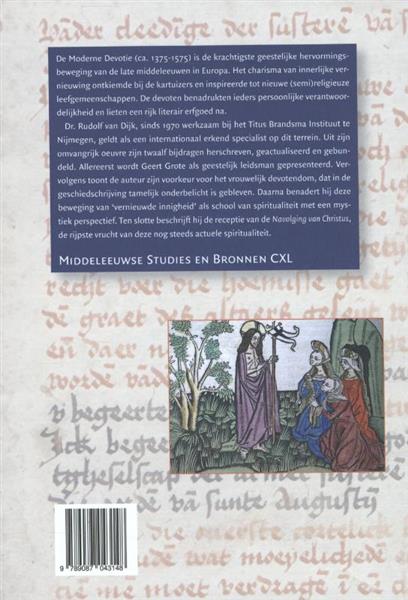 vāder deedinge der susterē vā s
De Moderne Devotie (ca. 1375-1575) is de krachtigste geestelijke hervormings-
beweging van de late middeleeuwen in Europa. Het charisma van innerlijke ver-
nieuwing ontkiemde bij de kartuizers en inspireerde tot nieuwe (semi)religieuze
leefgemeenschappen. De devoten benadrukten ieders persoonlijke verantwoor-
delijkheid en lieten een rijk literair erfgoed na.
Dr. Rudolf van Dijk, sinds 1970 werkzaam bij het Titus Brandsma Instituut te
Nijmegen, geldt als een internationaal erkend specialist op dit terrein. Uit zijn
omvangrijk oeuvre zijn twaalf bijdragen herschreven, geactualiseerd en gebun-
deld. Allereerst wordt Geert Grote als geestelijk leidsman gepresenteerd. Ver-
volgens toont de auteur zijn voorkeur voor het vrouwelijk devotendom, dat in de
geschiedschrijving tamelijk onderbelicht is gebleven. Daarna benadert hij deze
beweging van 'vernieuwde innigheid' als school van spiritualiteit met een mys-
tiek perspectief. Ten slotte beschrijft hij de receptie van de Navolging van Christus,
de rijpste vrucht van deze nog steeds actuele spiritualiteit.
Middeleeuwse Studies en Bronnen CXL
recht voer die hoemisse gaet
de graet des altaers
eñ daer
wordē vād
v begeerte
Ick begee
tghesel
vā sunte Augusty
die ouerste
wat moeyelichede
tie mē moet verdragē i ē
9 789087 043148